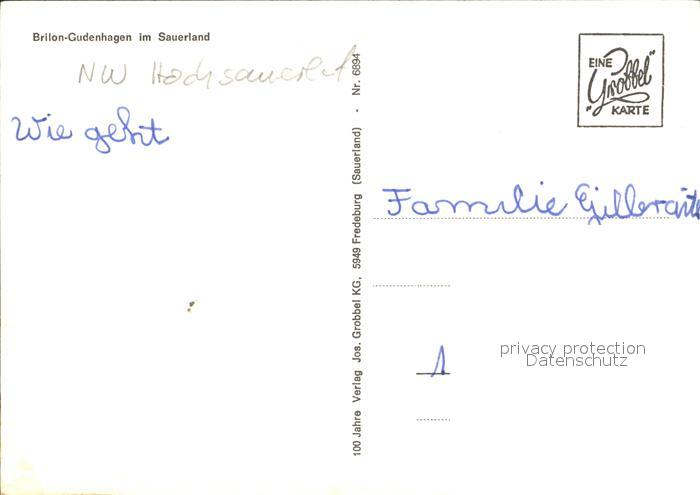 Brilon-Gudenhagen im Sauerland
NW Hochsauerl
Wie geht
100 Jahre Verlag Jos. Grobbel KG, 5949 Fredeburg (Sauerland) - Nr. 6894
EINE
"Grobbel"
KARTE
Familie
1
privacy protection
Datenschutz